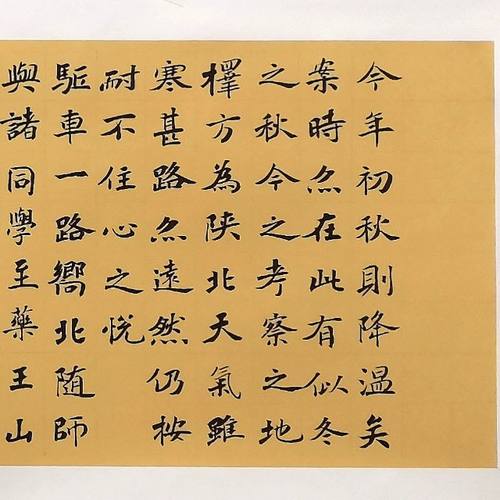 今年初秋則降温矣
案時亦在此有似冬
之秋今之考察之地
擇方為陝北天氣雖
寒甚路亦遠然仍按
耐不住心之悅
駈車一路嚮北随師
與諸同學至藥王山